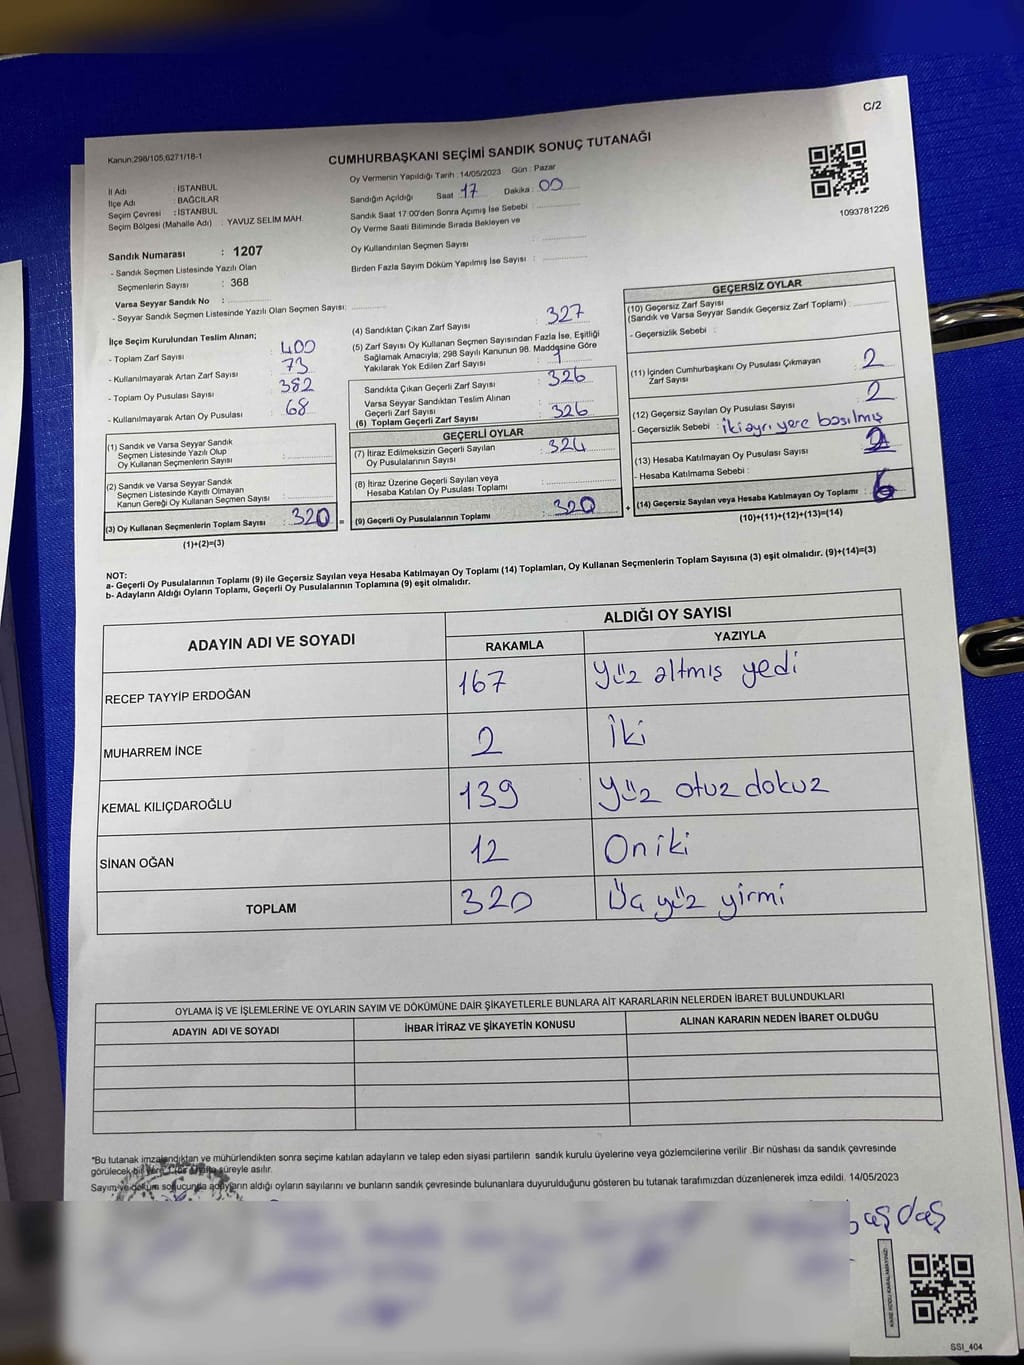 C/2
Kanun;298/105;6271/18-1
CUMHURBAŞKANI SEÇİMİ SANDIK SONUÇ TUTANAĞI
İl Adı : İSTANBUL
İlçe Adı : BAĞCILAR
Seçim Çevresi : İSTANBUL
Seçim Bölgesi (Mahalle Adı) : YAVUZ SELİM MAH.
Sandık Numarası : 1207
- Sandık Seçmen Listesinde Yazılı Olan
Seçmenlerin Sayısı : 368
Varsa Seyyar Sandık No :
- Seyyar Sandık Seçmen Listesinde Yazılı Olan Seçmen Sayısı:
Oy Vermenin Yapıldığı Tarih : 14/05/2023 Gün : Pazar
Sandığın Açıldığı Saat 17 Dakika : 00
Sandık Saat 17:00'den Sonra Açımış İse Sebebi :
Oy Verme Saati Bitiminde Sırada Bekleyen ve
Oy Kullandırılan Seçmen Sayısı :
Birden Fazla Sayım Döküm Yapılmış İse Sayısı :
1093781226
İlçe Seçim Kurulundan Teslim Alınan;
- Toplam Zarf Sayısı : 400
- Kullanılmayarak Artan Zarf Sayısı : 73
- Toplam Oy Pusulası Sayısı : 382
- Kullanılmayarak Artan Oy Pusulası : 68
(1) Sandık ve Varsa Seyyar Sandık
Seçmen Listesinde Yazılı Olup
Oy Kullanan Seçmenlerin Sayısı :
(2) Sandık ve Varsa Seyyar Sandık
Seçmen Listesinde Kayıtlı Olmayan
Kanun Gereği Oy Kullanan Seçmen Sayısı :
(3) Oy Kullanan Seçmenlerin Toplam Sayısı : 320 =
(1)+(2)=(3)
(4) Sandıktan Çıkan Zarf Sayısı : 327
(5) Zarf Sayısı Oy Kullanan Seçmen Sayısından Fazla İse, Eşitliği
Sağlamak Amacıyla; 298 Sayılı Kanunun 98. Maddesine Göre
Yakılarak Yok Edilen Zarf Sayısı : 1
Sandıkta Çıkan Geçerli Zarf Sayısı : 326
Varsa Seyyar Sandıktan Teslim Alınan
Geçerli Zarf Sayısı :
(6) Toplam Geçerli Zarf Sayısı : 326
GEÇERLİ OYLAR
(7) İtiraz Edilmeksizin Geçerli Sayılan
Oy Pusulalarının Sayısı : 324
(8) İtiraz Üzerine Geçerli Sayılan veya
Hesaba Katılan Oy Pusulası Toplamı :
(9) Geçerli Oy Pusulalarının Toplamı : 320 +
GEÇERSİZ OYLAR
(10) Geçersiz Zarf Sayısı
(Sandık ve Varsa Seyyar Sandık Geçersiz Zarf Toplamı) :
- Geçersizlik Sebebi :
(11) İçinden Cumhurbaşkanı Oy Pusulası Çıkmayan
Zarf Sayısı : 2
(12) Geçersiz Sayılan Oy Pusulası Sayısı : 2
- Geçersizlik Sebebi : iki ayrı yere basılmış
(13) Hesaba Katılmayan Oy Pusulası Sayısı : 2
- Hesaba Katılmama Sebebi :
(14) Geçersiz Sayılan veya Hesaba Katılmayan Oy Toplamı : 6
(10)+(11)+(12)+(13)=(14)
NOT:
a- Geçerli Oy Pusulalarının Toplamı (9) ile Geçersiz Sayılan veya Hesaba Katılmayan Oy Toplamı (14) Toplamları, Oy Kullanan Seçmenlerin Toplam Sayısına (3) eşit olmalıdır. (9)+(14)=(3)
b- Adayların Aldığı Oyların Toplamı, Geçerli Oy Pusulalarının Toplamına (9) eşit olmalıdır.
ADAYIN ADI VE SOYADI
ALDIĞI OY SAYISI
RAKAMLA YAZIYLA
RECEP TAYYİP ERDOĞAN 167 Yüz altmış yedi
MUHARREM İNCE 2 İki
KEMAL KILIÇDAROĞLU 139 Yüz otuz dokuz
SİNAN OĞAN 12 On iki
TOPLAM 320 Üç yüz yirmi
OYLAMA İŞ VE İŞLEMLERİNE VE OYLARIN SAYIM VE DÖKÜMÜNE DAİR ŞİKAYETLERLE BUNLARA AİT KARARLARIN NELERDEN İBARET BULUNDUKLARI
ADAYIN ADI VE SOYADI İHBAR İTİRAZ VE ŞİKAYETİN KONUSU ALINAN KARARIN NEDEN İBARET OLDUĞU
*Bu tutanak imzalandıktan ve mühürlendikten sonra seçime katılan adayların ve talep eden siyasi partilerin sandık kurulu üyelerine veya gözlemcilerine verilir .Bir nüshası da sandık çevresinde
görülecek bir yere süreyle asılır.
Sayım ve döküm sonucunda adayların aldığı oyların sayılarını ve bunların sandık çevresinde bulunanlara duyurulduğunu gösteren bu tutanak tarafımızdan düzenlenerek imza edildi. 14/05/2023
SSI_404